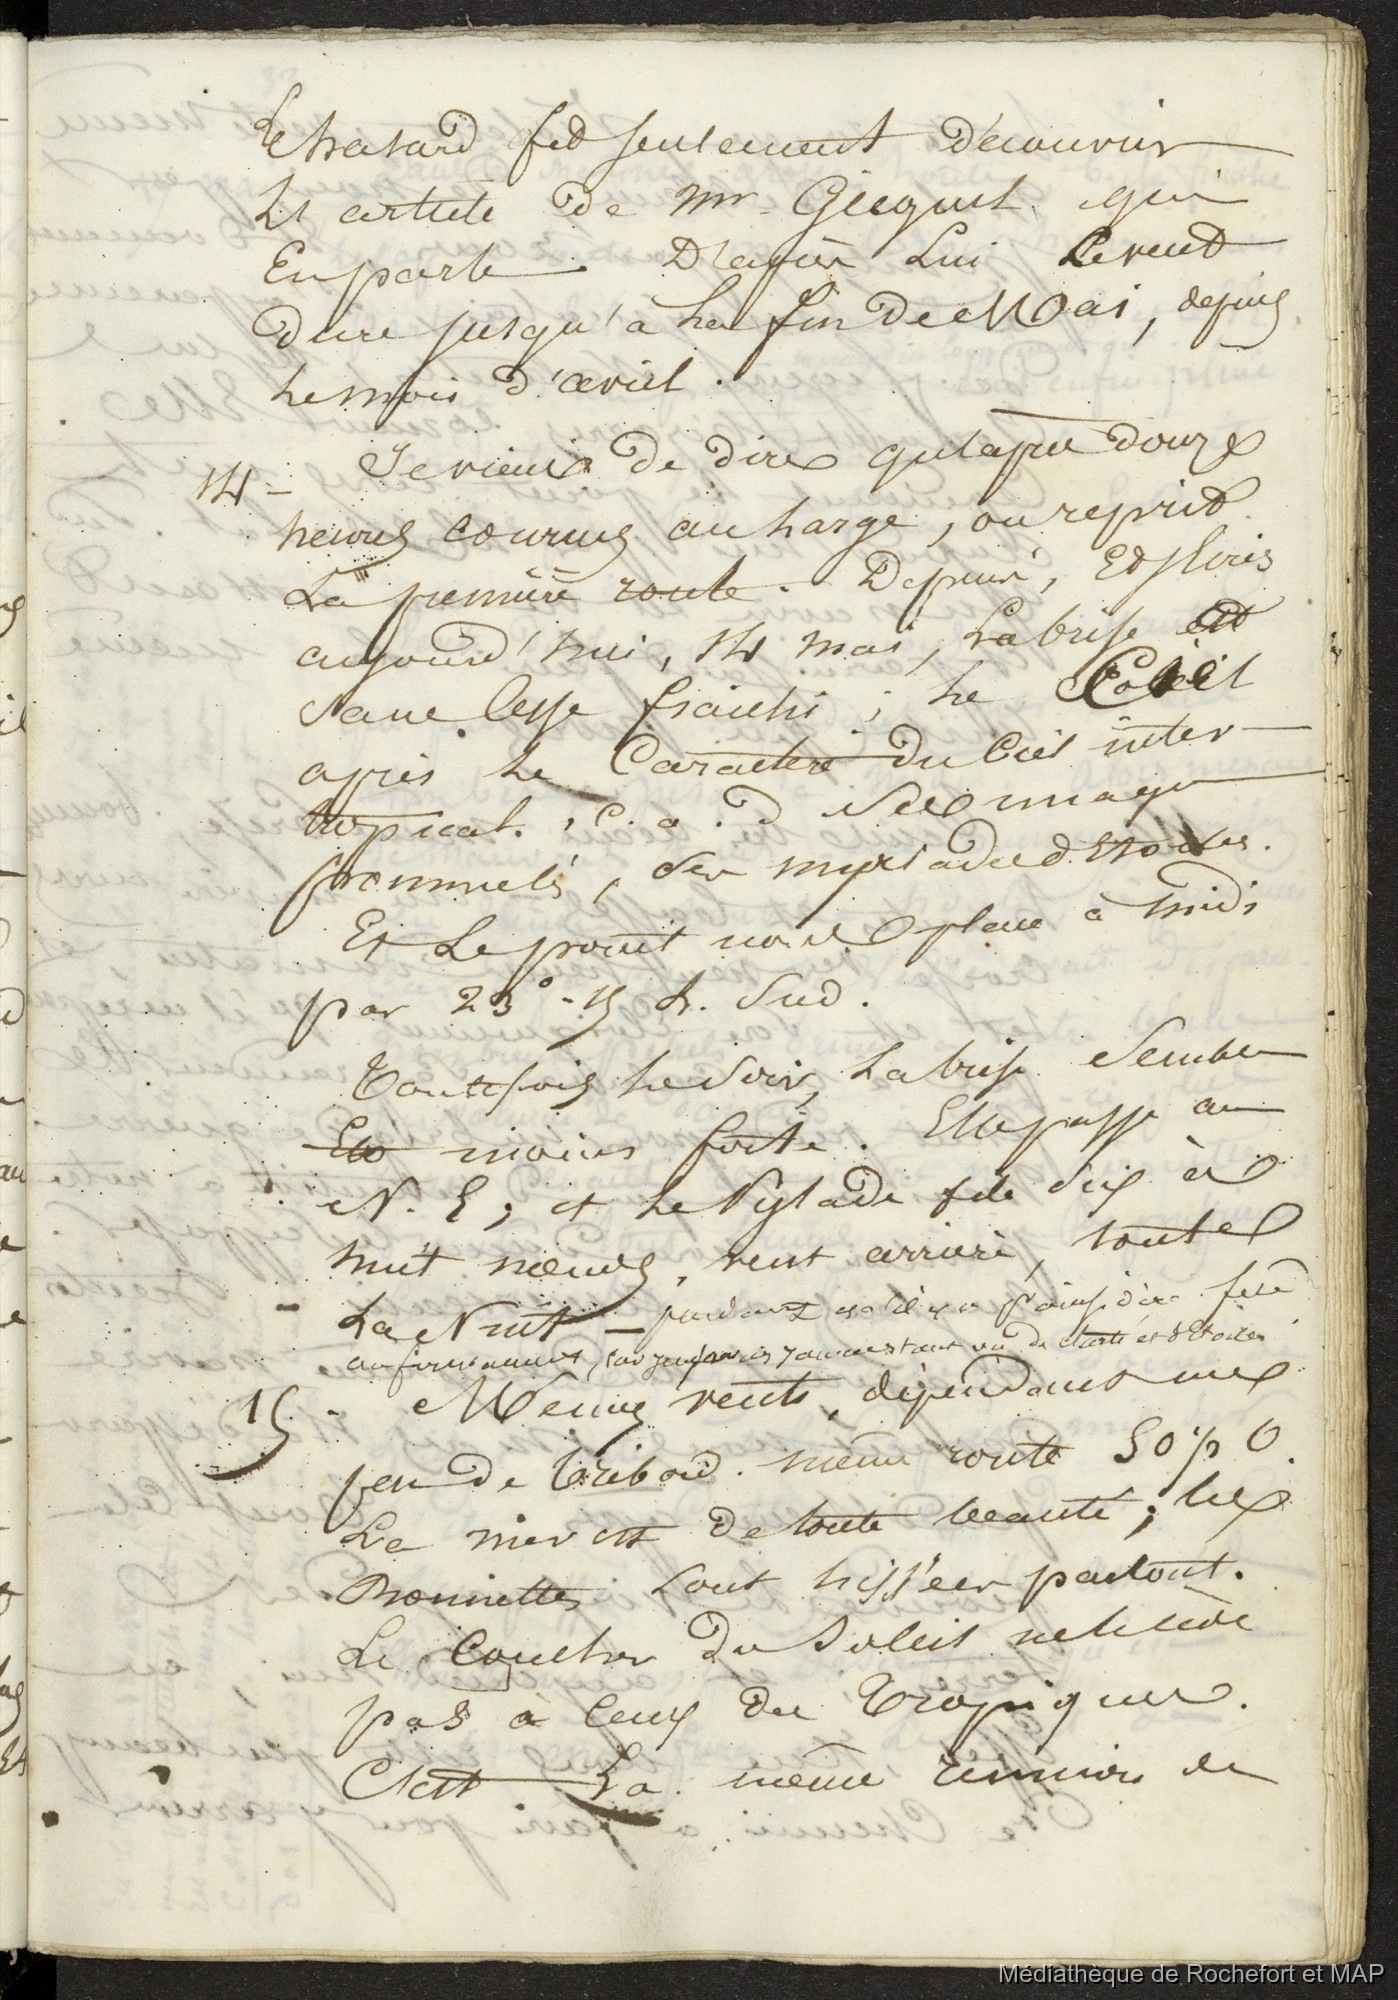 Le hasard fit seulement découvrir
Les article de Mr. Gicquel qui
En parle. D'après Lui Levent
dure jusqu'à La fin de Mai, depuis
Lemois d'avril.
14 – Je viens de dire qu'après douze
heures courues au Large, on reprit
La première route. Depuis, Et
aujourd'hui, 14 mai, Labrise est
sans Cesse fraichi ; Le Soleil
après Le Caractère du Ciel inter-
tropical. , C. a. d des nuages
pommelés, des myriades d'Etoiles.
Et Le point nous place à midi
par 23° - 15 L. Sud.
Toutefois Le Soir, Labrise Semble
moins forte. Elle passe au
N. E ; et Le Pylade file Six à
huit nœuds, vent arrière, toute
La Nuit – pendant il y a p' ainsi dire fête
au firmament, car jamais tant vu de clarté et d'Etoiles
15 - Mêmes vents, dépendant un
peu de Tribord. même route SO ¼ O.
La mer est de toute beauté ; les
Bonnettes sont hissées partout.
Le Coucher Du Soleil ne le cède
pas à Ceux des Tropiques.
C'est La même réunion de
Médiathèque de Rochefort et MAP